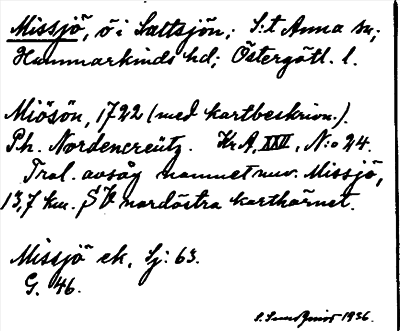 Missjö, ö i Saltsjön; S:t Anna sn;
Hammarkinds hd; Östergötl. l.
Miösön, 1722 (med kartbeskrivn.).
Ph. Nordencreütz. Kr A, XXVI, N:o 24.
Trol. avsåg namnet nuv. Missjö,
13,7 km. SV nordöstra karthörnet.
Missjö ek, Sj: 63.
G. 46.
1936.